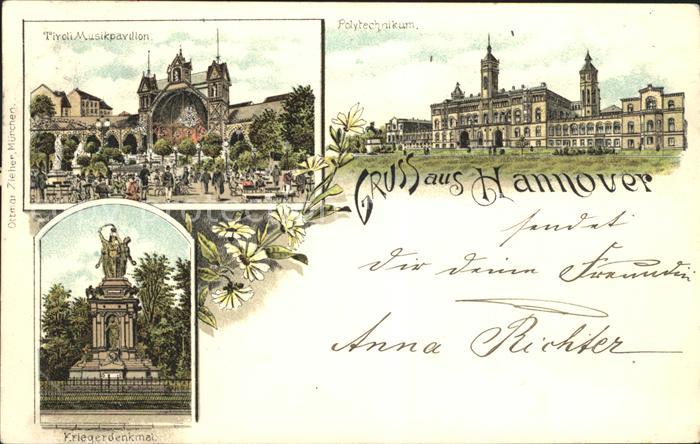 Tivoli Musikpavillon.
Polytechnikum.
Gruss aus Hannover
sendet
Dir deine Freundin
Anna Richter
Kriegerdenkmal.
Ottmar Zieher, München.